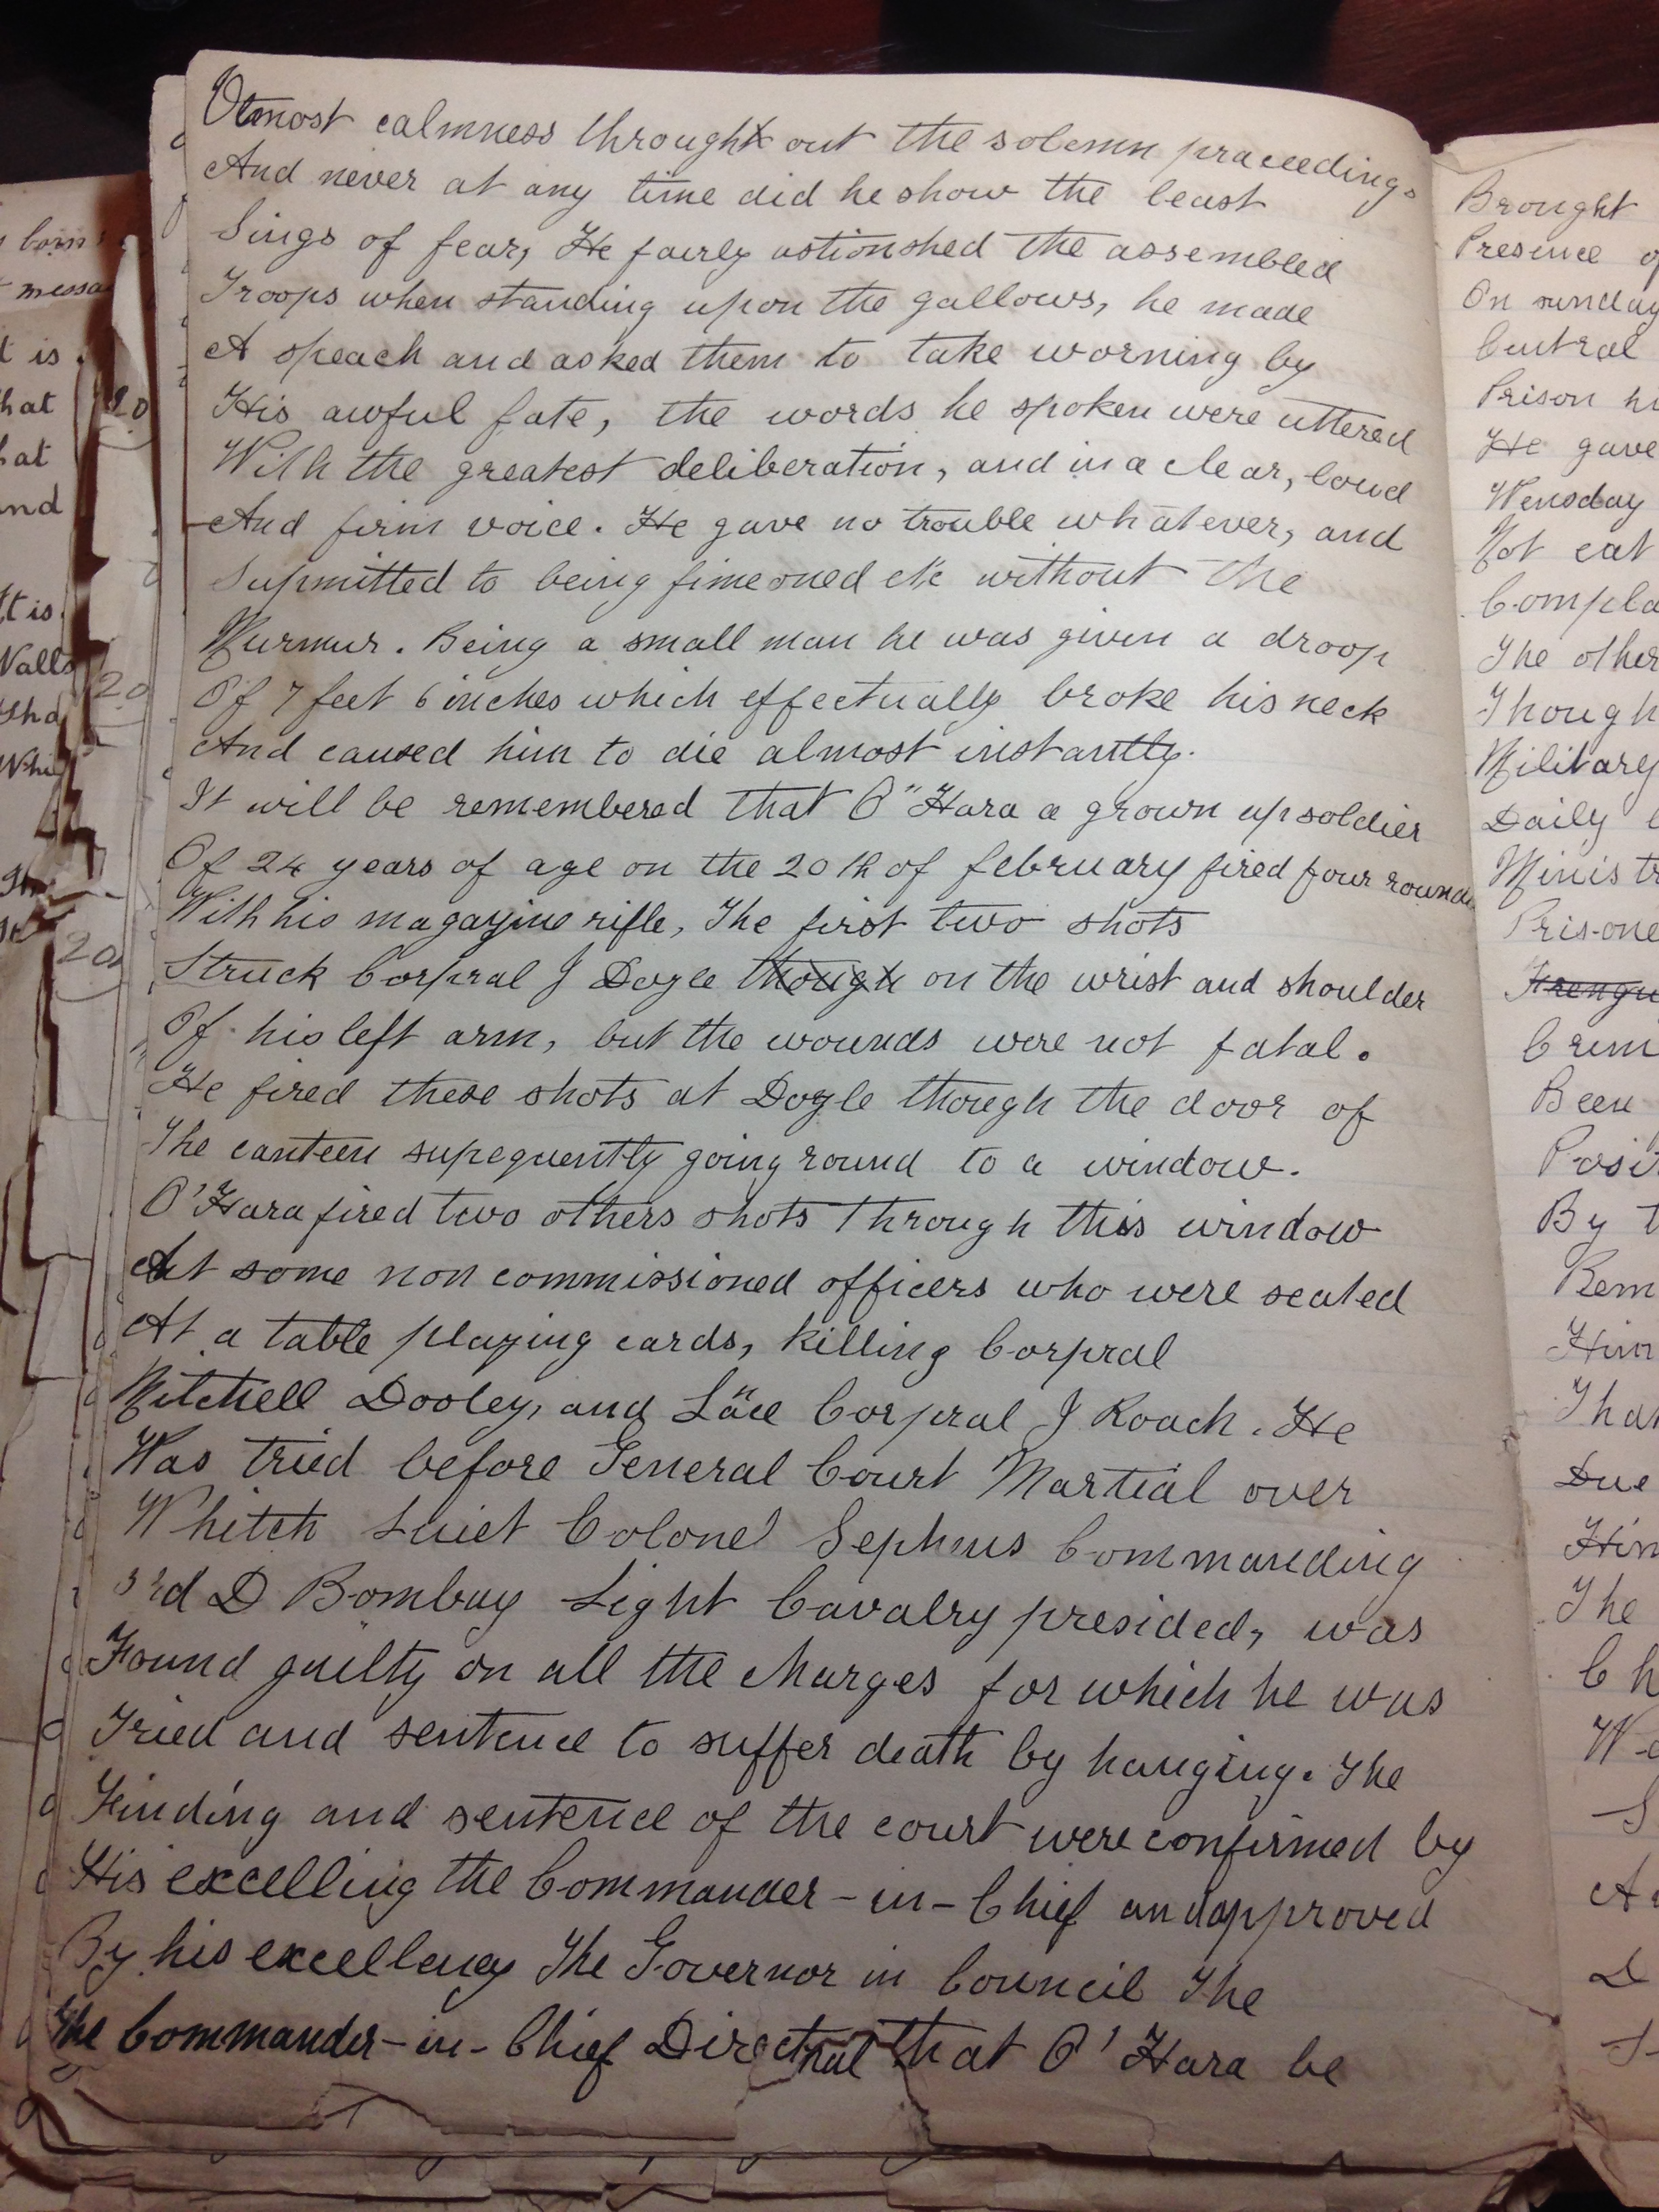 Utmost calmness through out the solemn praceedings
And never at any time did he show the least
Sings of fear, He fairly astionshed the assembled
Troops when standing upon the gallows, he made
A speach and asked them to take worning by
His awful fate, the words he spoken were uttered
With the greatest deliberation, and in a clear, loud
And firm voice. He gave no trouble whatever, and
Supmitted to being without the
Murmur. Being a small man he was given a droop
Of 7 feet 6 inches which effectually broke his neck
And caused him to die almost instantly.
It will be remembered that O"Hara a grown up soldier
Of 24 years of age on the 20th of february fired four rounds
With his magazine rifle, The first two shots
Struck Corpral J Doyle though on the wrist and shoulder
Of his left arm, but the wounds were not fatal.
He fired these shots at Doyle though the door of
The canteen supequently going round to a window.
O'Hara fired two others shots through this window
At some non commissioned officers who were seated
At a table playing cards, killing Corpral
Mitchell Dooley, and Corpral J Roach. He
Was tried before General Court Martial over
Whitch Luiet Colonel Sephens Commanding
3rd D Bombay Light Cavalry presided, was
Found guilty on all the charges for which he was
Tried and sentence to suffer death by hanging. The
Finding and sentence of the court were confirmed by
His excelling the Commander-in-Chief and approved
By his excellency The Governor in Council The
The Commander-in-Chief that O'Hara be
Brought
Presence
On sunday
Central
Prison
He gave
Wensday
Not eat
The other
Though
Military
Daily
Been
By
That
Due
The
born
messa
t is
hat
20
hat
and
It is
Walls
20
20